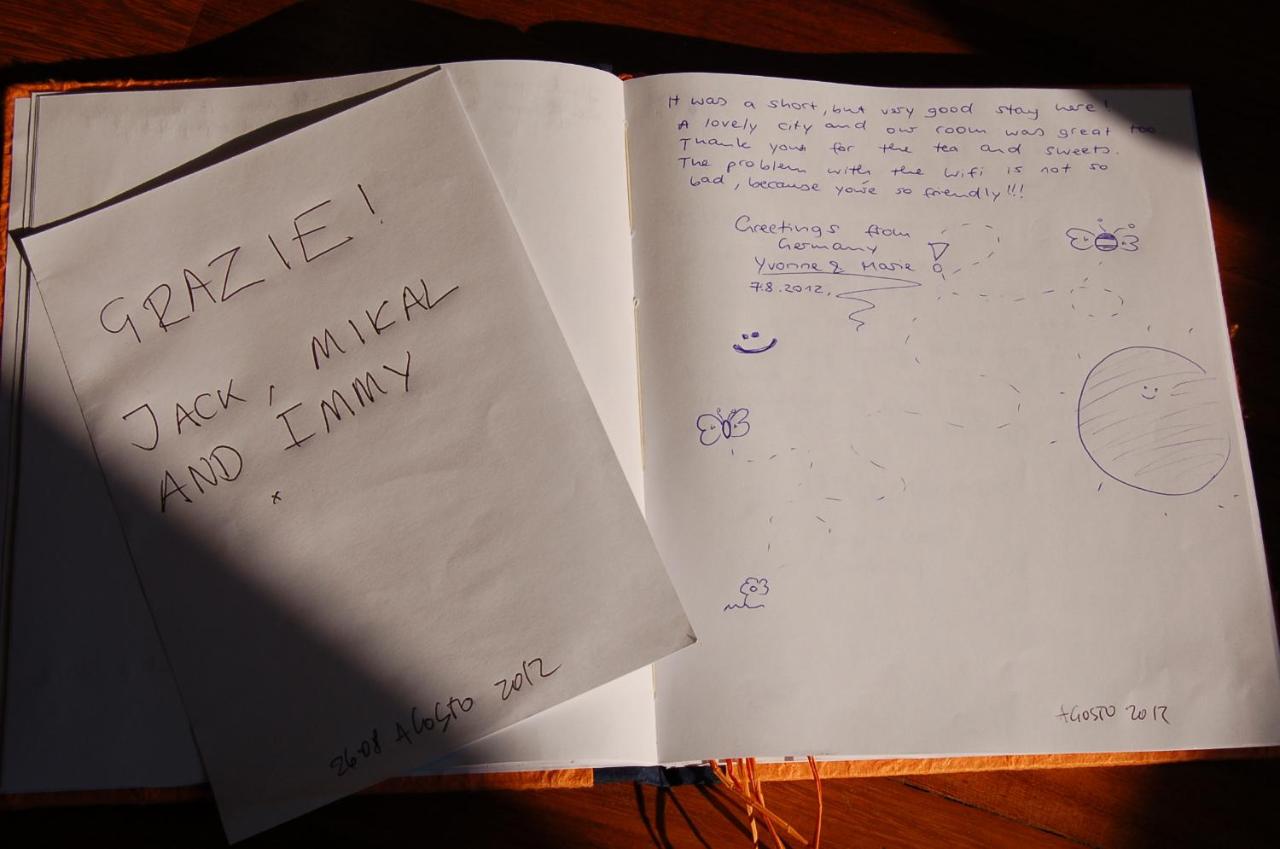 GRAZIE!
JACK, MIKAL
AND IMMY
x
26.08 AGOSTO 2012
It was a short, but very good stay here!
A lovely city and our room was great too
Thank your for the tea and sweets.
The problem with the wifi is not so
bad, because you're so friendly!!!
Greetings from
Germany
Yvonne & Marie
7.8.2012,
AGOSTO 2012